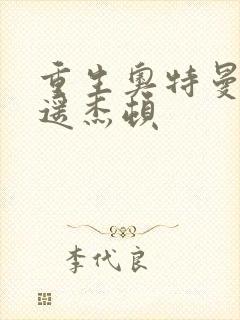 重生奥特曼
遥杰顿
李代良